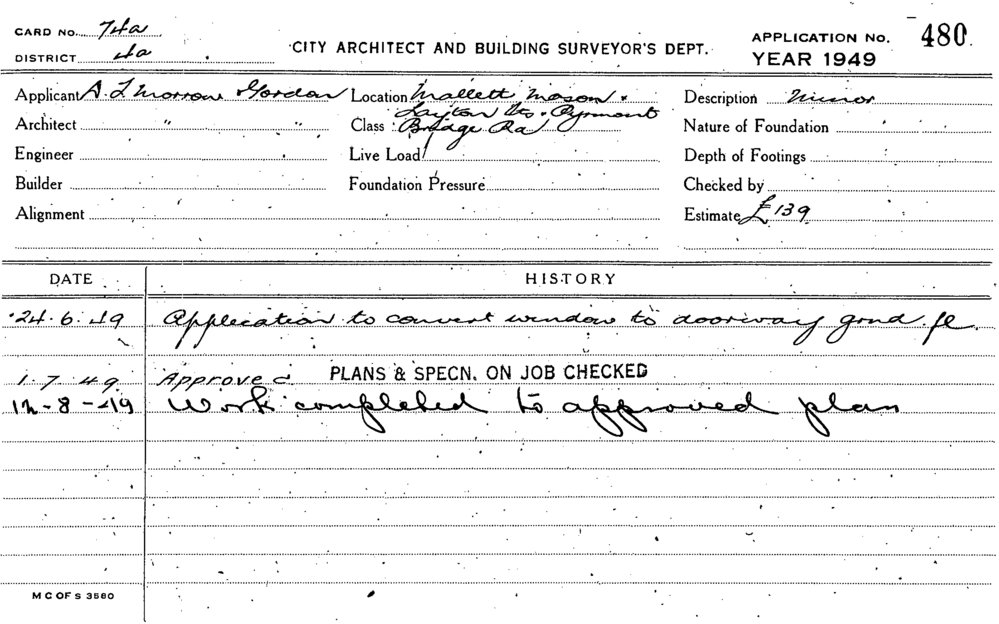 CARD NO. 74a
DISTRICT 4a
CITY ARCHITECT AND BUILDING SURVEYOR'S DEPT.
APPLICATION NO. 480
YEAR 1949
Applicant A. L Morrow Gordon
Architect " "
Engineer
Builder
Alignment
Location Mallett Mason &
Layton Sts & Pyrmont
Class Bridge Rd
Live Load
Foundation Pressure
Description Minor
Nature of Foundation
Depth of Footings
Checked by
Estimate £139
DATE HISTORY
24.6.49 Application to convert window to doorway grnd fl.
1.7.49 Approved PLANS & SPECN. ON JOB CHECKED
12-8-49 Work completed to approved plan
M C OF S 3580